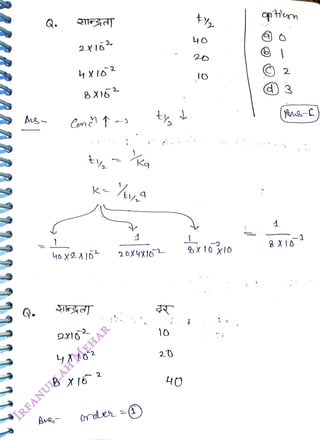 Q. सान्द्रता t½ option
2×10⁻² 40 ⓐ 0
4×10⁻² 20 ⓑ 1
8×10⁻² 10 ⓒ 2
ⓓ 3
Ans-C
Ans- Concⁿ ↑ → t½ ↓
t½ = 1/Ka
K = 1/t½ a
= 1/40×2×10⁻² 1/20×4×10⁻² 1/8×10⁻²×10 = 1/8×10⁻¹
Q. सान्द्रता दर
2×10⁻² 10
4×10⁻² 20
8×10⁻² 40
Ans- order = ①
IRFANULLAH MEHAR